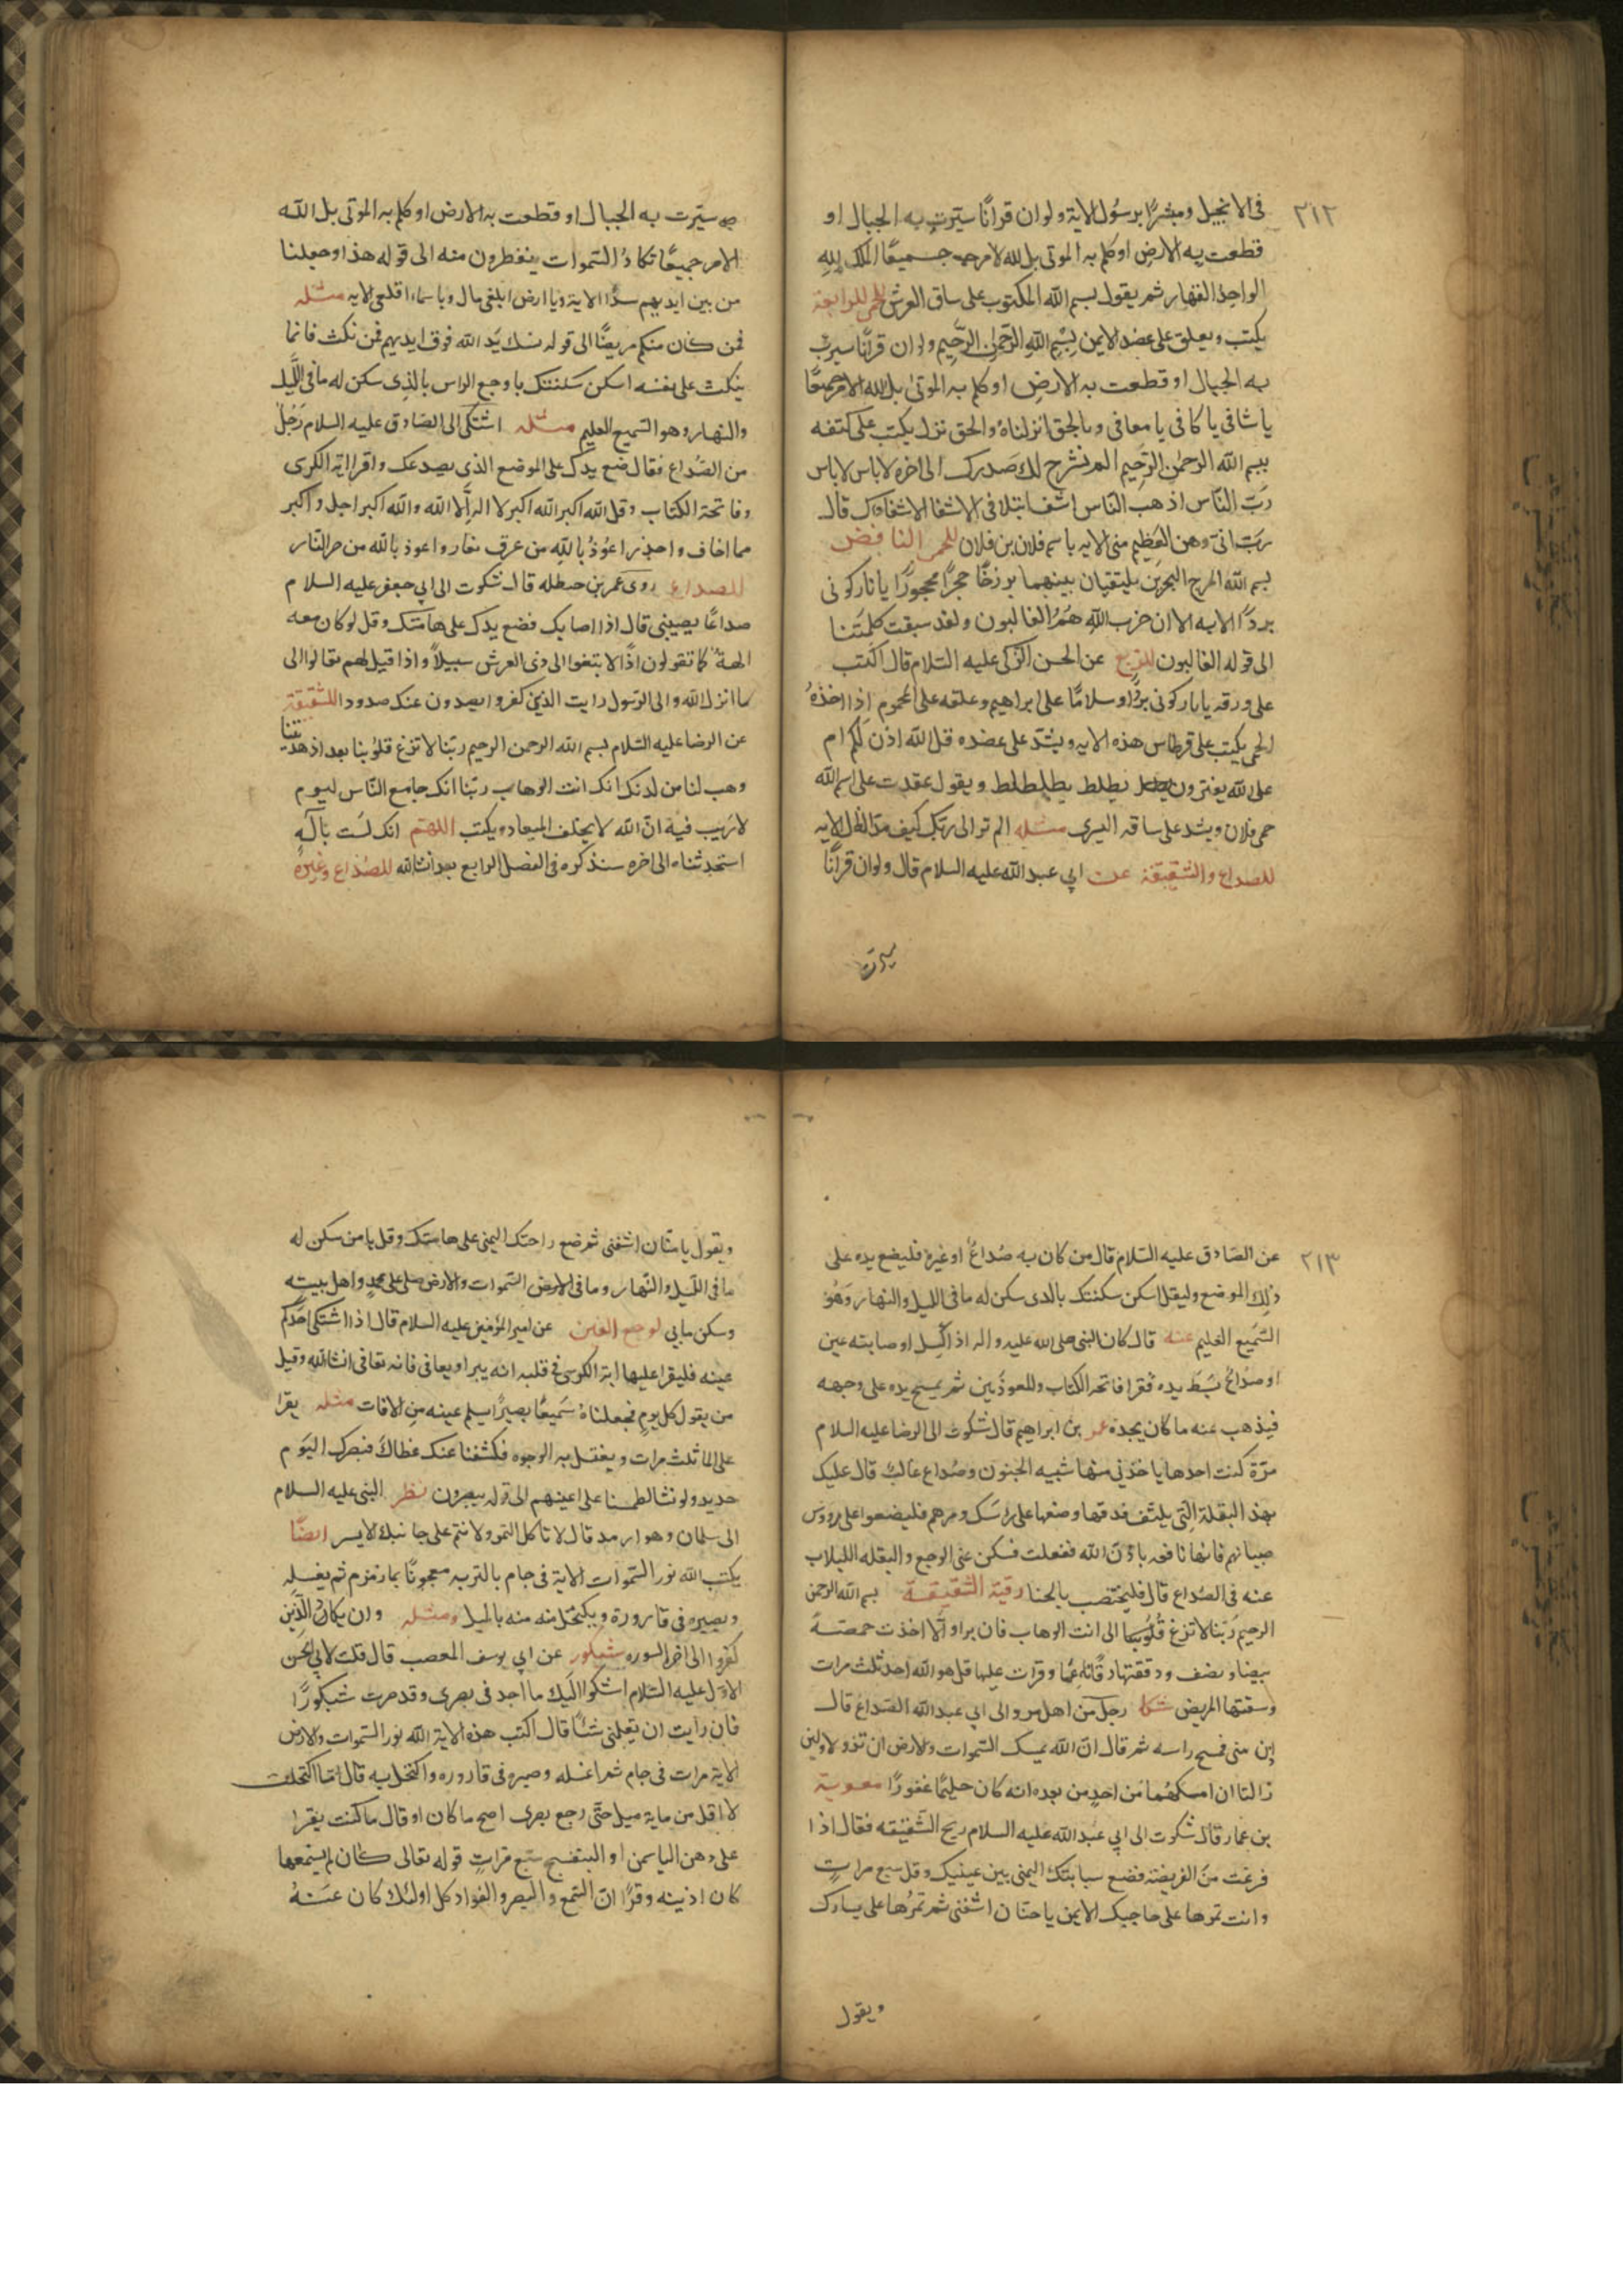 ٢١٢
فى الانجيل ومبشرًا برسُول الاية ولو ان قرانًا سيّرت به الجبال او
قطعت به الارضِ او كلم به الموتى بل لله الامر جميعًا الملك لِلهِ
الواحِدُ القهار ثم يقول بسم الله المكتوب على ساق العرش للحمى الرابعة
يكتب ويعلق على عضد الايمن بِسْمِ اللهِ الرَّحمٰنِ الرَّحِيمِ ولو ان قرانًا سيرت
به الجبال او قطعت به الارضِ او كلم به الموتى بل لله الامر جميعًا
يا شافى يا كافى يا معافى وبالحق انزلناهُ والحق نزل يكتب على كتفه
بسم الله الرحمٰن الرَّحِيم الم نشرح لك صَدرك الى اخره لا باس لا باس
رَبّ النّاس اذهب الناس اشف الاشفاؤك قال
رَبّ انى وهن العَظِم منى الايه باسم فلان بن فلان للحمى النافض
بسم الله مرج البحرين يلتقيان بينهما برزخًا حجرًا محجورًا يا نار كونى
بردًا الايه الا ان حزب اللهِ هُمُ الغالبون ولقد سبقت كلمتنا
الى قوله الغالبون للربع عن الحسن الزكى عليه السّلام قال اكتب
على ورقه يا نار كونى بردًا وسلامًا على ابراهيم وعلقه على المحموم اذا اخذهُ
الحمى يكتب على قرطاس هذه الايه ويشدّ على عضده قل الله اذن لَكُم ام
على لله يفترون يطلط يطلطلط ويقول عقدت على اسم الله
حمى فلان ويشد على ساقه اليسرى مثله الم تر الى ربّك كيف مدّ الظل الايه
للصداع والشقيقة عن ابى عبد الله عليه السلام قال ولو ان قرآنًا
سيرت
سيّرت به الجبال او قطعت به الارض او كلم به الموتى بل الله
الامر جميعًا تكادُ السّموات يتفطرون منه الى قوله هذا وجعلنا
من بين ايديهم سدًّا الاية ويا ارض ابلعى مال ويا سماء اقلعى الايه مثله
فمن كان منكم مريضًا الى قوله نسك يَد الله فوق ايديهم فمن نكث فانما
ينكث على نفسه اسكن سكنتك يا وجع الراس بالذِى سكن له ما فى اللّيل
والنهار وهو السّميع العليم مثله اشتكى الى الصّادق عليه السلام رَجُل
من الصُّداع فقال ضع يدك على الموضع الذى يصدعك واقرا اية الكرى
وفاتحة الكتاب وقل الله اكبر الله اكبر لا اله اِلّا الله والله اكبر اجل واكبر
مما اخاف واحذر اعُوذُ باللهِ من عرق نعار واعوذ بالله من حر النّار
للصداع روى عمر بن حنظله قال شكوت الى ابى جعفر عليه السلام
صداعًا يصيبنى قال اذا اصابك فضع يدك على هامتك وقل لو كان معه
الهةٌ كما تقولون اذًا لابتغوا الى ذى العرش سبيلاً واذا قيل لهم تعالوا الى
ما انزل الله والى الرّسول رايت الذين كفروا يصدون عنك صدودا للشقيقة
عن الرضا عليه السّلام بسم الله الرحمن الرحيم ربّنا لا تزغ قلوُبنا بعد اذ هديتنا
وهب لنا من لدنك انك انت الوهاب ربّنا انك جامع النّاس ليوم
لا رَيب فيهِ انّ الله لا يخلف الميعاد ويكتب اللهم انك لَست بآلهٍ
استحدثناه الى اخره سنذكره فى الفصل الرابع بعد انشالله للصُداع وغيرهُ
٢١٣
عن الصّادق عليه السّلام قال من كان به صُداعٌ او غيرهُ فليضع يده على
ذلِك الموضع وليقل اسكن سكنتك بالدى سكن له ما فى الليل والنهار وَهُو
السَّمِيع العَليم عنه قال كان النبى صلى الله عليه واله اذا كسِل او صابته عين
او صُداعٌ بَسَطَ يده فقرا فاتحه الكتاب والمعوذتين ثم يمسح يده على وجهه
فيذهب عنه ما كان يجده عمر بن ابراهيم قال شكوت الى الرضا عليه السلام
مرّة كنت اجدها ياخذنى منها شبيه الجنون وصُداع غالب قال عليك
بهذ البقلة الّتى يلتف فدقها وضعها على راسَك ومرهم فليضعوا على رووس
صبيانهم فانها نافعه باذن الله ففعلت فسكن عنى الوجع والبقله اللبلاب
عنه فى الصُداع قال فليختضب بالحنا رقية الشقيقة بسم الله الرحمن
الرحيم رَبّنا لا تزغ قُلُوُبنا الى انت الوهاب فان برا والّا اخذت حمصَةً
بيضا ونصف ودققتها دقًا نِعِمًا وقرات عليها قل هو الله احد ثلث مرات
وسقتها المريض شكا رجل من اهل مرو الى ابى عبد الله الصّداعَ قال
ادن منى فمسح راسه ثم قال انّ الله يمسك السّموات والارض ان تزولا ولئن
زالتا ان امسكهُما من احدٍ من بعده انه كان حليمًا غفورًا معوية
بن عمار قال شكوت الى ابى عبد الله عليه السلام ريح الشّقيقه فقال اذا
فرغت من الفريضة فضع سبابتك اليمنى بين عينيك وقل سبع مراتٍ
وانت تمرها على حاجبك الايمن يا حنّان اشفنى ثم تمرُها على يسارك
ويقول
ويقول يا منّان اشفنى ثم ضع راحتك اليمنى على هامتك وقل يا من سكن له
ما فى اللّيل والنّهار وما فى الارض السّموات والارض صل على محمدٍ واهل بيته
وسكن ما بى لوجع العين عن امير المؤمنين عليه السلام قال اذا اشتكى احَدكم
عينه فليقرا عليها اية الكرسى وفى قلبه انه يبرا ويعافى فانه تعافى انشالله وقيل
من يقول كل يوم فجعلناهُ سَميعًا بصيرًا يسلم عينه من الافات مثله يقرا
على الما ثلث مرات ويغتسل به الوجوه فكشفنا عنك غطاكَ فبصرك اليَوم
حديد ولو نشا لطمسنا على اعينهم الى قوله يبصرون نظر النبى عليه السلام
الى سلمان وهو ارمد قال لا تاكل التمر ولا تنم على جانبك الايسر ايضًا
يكتب الله نور السّموات الاية فى جام بالتربه معجونًا بما زمزم ثم يغسله
ويصيره فى قارورة ويكتحل منه بالميل ومثله وان يكادُ الّذِين
كفروا الى اخر السوره شبكور عن ابى يوسف المعصب قال قلت لابى الحسن
الاوّل عليه السّلام اشكوا اليك ما اجد فى بصرى وقد صرت شبكورًا
فان رايت ان يعلمنى شئًا قال اكتب هذه الاية الله نور السّموات والارض
الاية مرات فى جام ثم اغسله وصيره فى قاروره واكتحل به قال فما اكتحلت
لا اقل من ماية ميل حتّى رجع بصرى اصح ما كان او قال ما كنت يقرا
على دهن الياسمن او البنفسج سَبع مَراتٍ قوله تعالى كان لم يسمعها
كان اذنيه وقرًا انّ السّمع والبصر والفواد كل اولئك كان عَنهُ